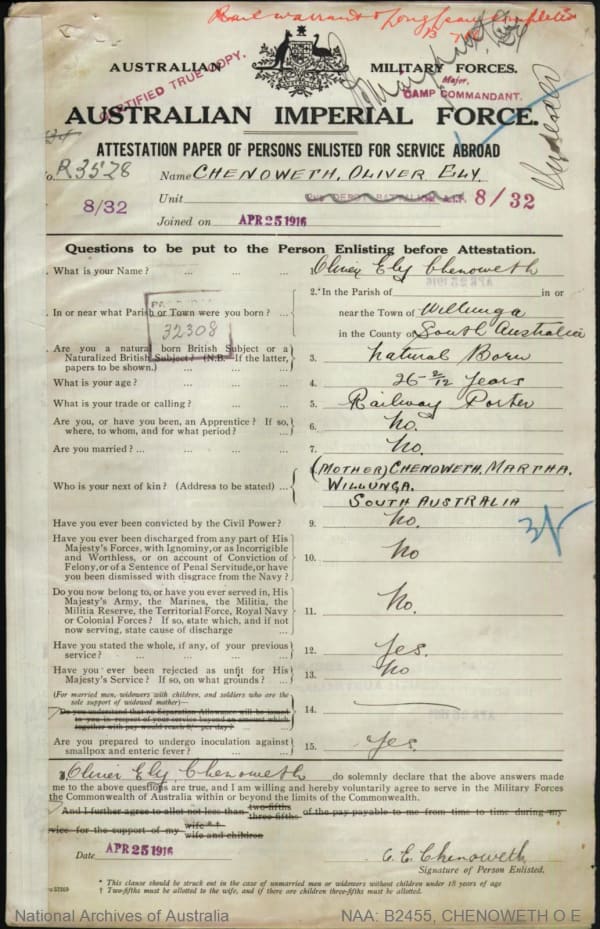 Rail warrant & Long leave completed
AUSTRALIAN MILITARY FORCES.
CERTIFIED TRUE COPY.
Major,
CAMP COMMANDANT.
AUSTRALIAN IMPERIAL FORCE.
ATTESTATION PAPER OF PERSONS ENLISTED FOR SERVICE ABROAD
o. R3528 Name CHENOWETH, OLIVER ELY.
8/32 Unit 8/32
Joined on APR 25 1916
Questions to be put to the Person Enlisting before Attestation.
. What is your Name? ... ... ... Oliver Ely Chenoweth
2.* In the Parish of in or
. In or near what Parish or Town were you born? ... near the Town of Willunga
32308
in the County of South Australia
. Are you a natural born British Subject or a
Naturalized British Subject? (N.B. If the latter,
papers to be shown.) ... ... ... 3. Natural Born
. What is your age? ... ... ... 4. 26 2/12 years
. What is your trade or calling? ... ... ... 5. Railway Porter
. Are you, or have you been, an Apprentice? If so,
where, to whom, and for what period? ... ... 6. No.
. Are you married? ... ... ... ... 7. No.
(MOTHER) CHENOWETH, MARTHA.
. Who is your next of kin? (Address to be stated) ... WILLUNGA.
SOUTH AUSTRALIA
. Have you ever been convicted by the Civil Power? 9. No.
. Have you ever been discharged from any part of His
Majesty's Forces, with Ignominy, or as Incorrigible
and Worthless, or on account of Conviction of
Felony, or of a Sentence of Penal Servitude, or have
you been dismissed with disgrace from the Navy? 10. No
. Do you now belong to, or have you ever served in, His
Majesty's Army, the Marines, the Militia, the
Militia Reserve, the Territorial Force, Royal Navy
or Colonial Forces? If so, state which, and if not
now serving, state cause of discharge ... 11. No.
. Have you stated the whole, if any, of your previous
service? ... ... ... ... 12. Yes.
. Have you ever been rejected as unfit for His
Majesty's Service? If so, on what grounds? ... 13. No
(For married men, widowers with children, and soldiers who are the
sole support of widowed mother)—
Do you understand that no Separation Allowance will be issued
to you in respect of your service beyond an amount which
together with pay would reach 8/- per day? ... 14.
. Are you prepared to undergo inoculation against
smallpox and enteric fever? ... ... 15. Yes.
I, Oliver Ely Chenoweth do solemnly declare that the above answers made
me to the above questions are true, and I am willing and hereby voluntarily agree to serve in the Military Forces
the Commonwealth of Australia within or beyond the limits of the Commonwealth.
And I further agree to allot not less than two-fifths three-fifths of the pay payable to me from time to time during my
vice for the support of my wife * † wife and children
Date APR 25 1916 O. E. Chenoweth
Signature of Person Enlisted.
* This clause should be struck out in the case of unmarried men or widowers without children under 18 years of age
† Two-fifths must be allotted to the wife, and if there are children three-fifths must be allotted.
National Archives of Australia NAA: B2455, CHENOWETH O E